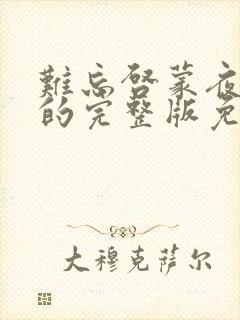 難忘啓蒙夜
的完整版免
大穆克萨尔